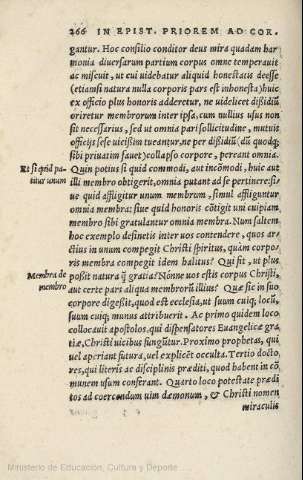 266 IN EPIST. PRIOREM AD COR.
gantur. Hoc consilio conditor deus mira quadam har
monia diuersarum partium corpus omne temperauit
ac miscuit, ut cui uidebatur aliquid honestatis deesse
(etiamsi natura nulla corporis pars est inhonesta) huic
ex officio plus honoris adderetur, ne uidelicet dißidiũ
oriretur membrorum inter ipsa, cum nullius usus non
sit necessarius, sed ut omnia pari sollicitudine, mutuis
officijs sese uicißim tueantur, ne per dißidiũ, (dũ quodq;
sibi priuatim fauet) collapso corpore, pereant omnia.
Et si quid pa-
titur unum
Quin potius si quid commodi, aut incõmodi, huic aut
illi membro obtigerit, omnia putant ad se pertinere: si
ue quid affligitur unum membrum, simul affliguntur
omnia membra: siue quid honoris cõtigit uni cuipiam
membro sibi gratulantur omnia membra. Num saltem
hoc exemplo definetis inter uos contendere, quos ar
ctius in unum compegit Christi spiritus, quàm corpo
ris membra compegit idem halitus? Qui fit, ut plus
Membra de
membro
poßit natura q̃ gratia? Nónne uos estis corpus Christi,
aut certe pars aliqua membrorũ illius? Quæ sic in suo
corpore digeßit, quod est ecclesia, ut suum cuiq; locũ,
suum cuiq; munus attribuerit. Ac primo quidem loco
collocauit apostolos, qui dispensatores Euangelicæ gra
tiæ, Christi uicibus fungũtur. Proximo prophetas, qui
uel aperiant futura, uel explicẽt occulta. Tertio docto
res, qui literis ac disciplinis præditi, quod habent in cõ
munem usum conferant. Quarto loco potestate prædi
tos ad coercendum uim dæmonum, & Christi nomen
miraculis
Ministerio de Educación, Cultura y Deporte